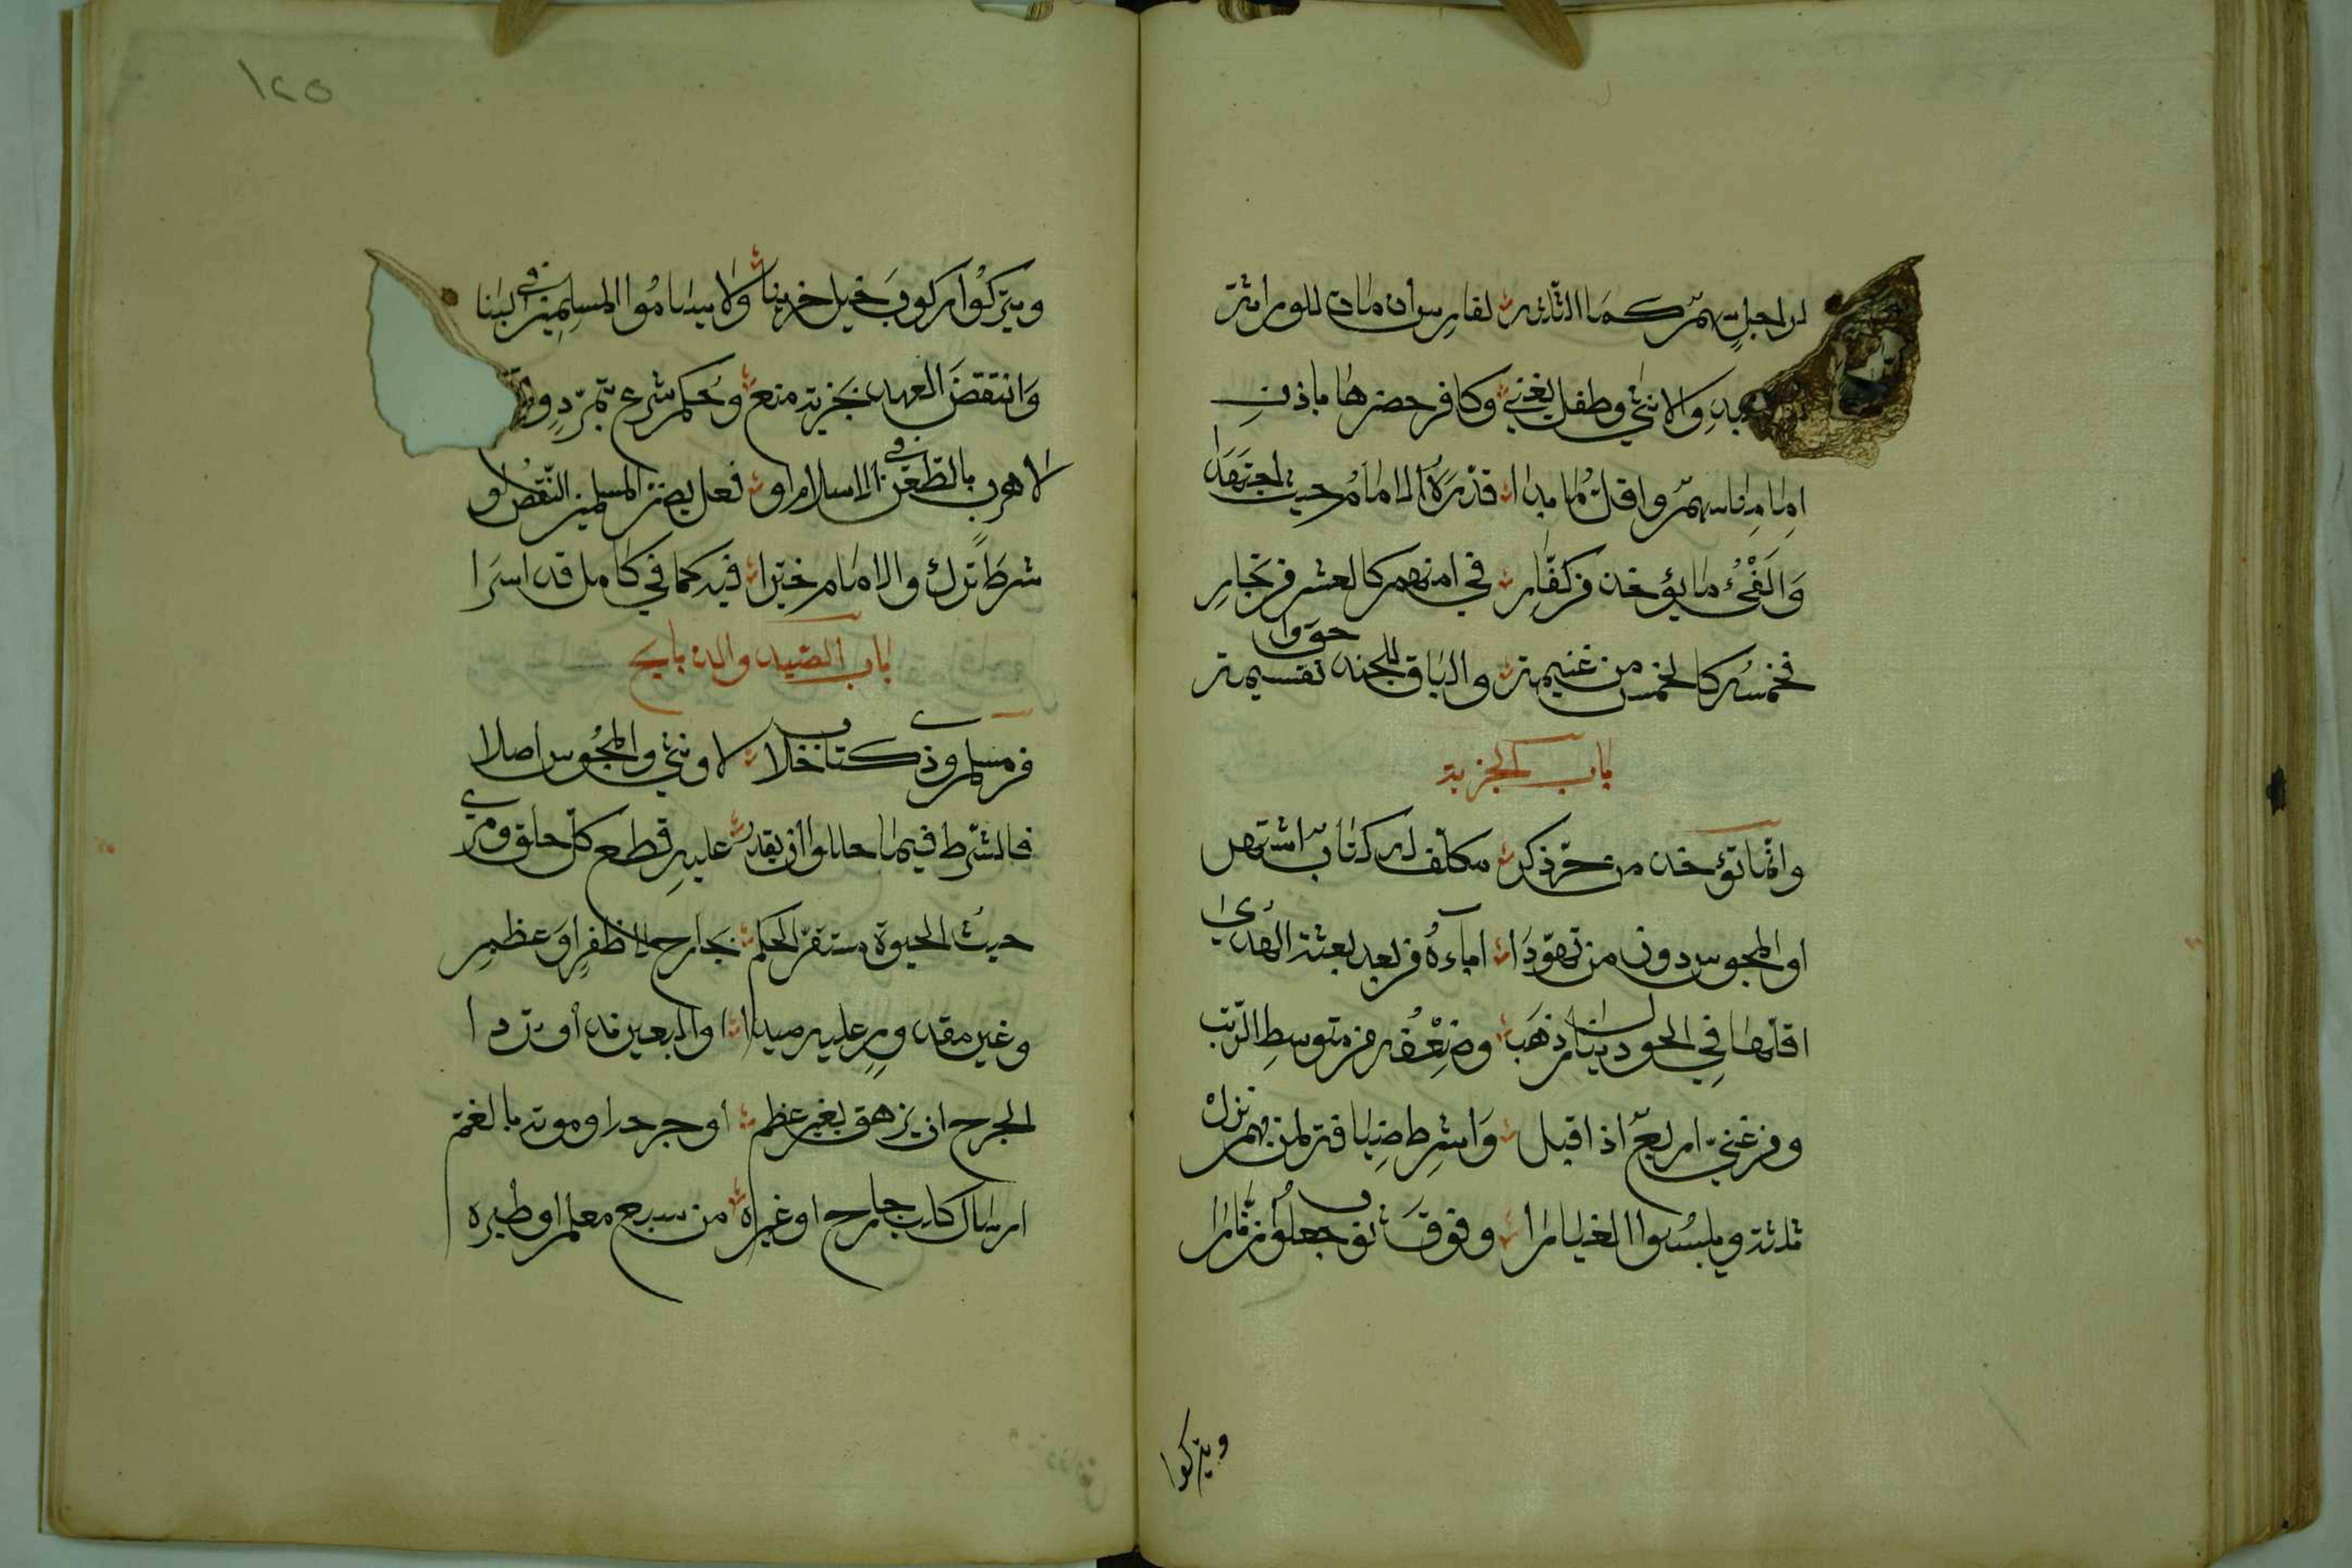 لراجل سهم كما الثلاثه لفارس ان مات للوراثة
والعبد والانثى وطفل يغني وكافر حضرها باذن
امامنا سهم واقل ما بدا قدره الامام حيث اجتهدا
والفيء ما يؤخذ من كفار في امنهم كالعشر من تجار
فخمسه كالخمس من غنيمة والباقي للجند حووا تقسيمه
باب الجزية
وانما تؤخذ من حر ذكر مكلف له كتاب اشتهر
او المجوس دون من تهودا اباءه من بعد بعثة الهدى
اقلها في الحول دينار ذهب وضعفه من متوسط الرتب
ومن غني اربع اذا قبل واشرط ضيافة لمن بهم نزل
ثلثة ويلبسوا الغيارا وفوق ثوب جعلوا زنارا
ويتركوا
١٢٥
ويتركوا ركوب خيل حربنا ولا يساموا المسلمين في البنا
وانتقض العهد بجزية منع وحكم شرع بتمرد
لا هرب بالطعن في الاسلام او فعل يضر المسلمين النقض لو
شرط ترك والامام خيرا فيه كما في كامل قد اسرا
باب الصيد والذبايح
من مسلم وذي كتاب حللا لا وثني والمجوس اصلا
فالشرط فيما حللوا ان يقدر عليه قطع كل حلق ومري
حيث الحيوة مستقر الحكم بجارح لا ظفر او عظم
وغير مقدور عليه صيدا او البعير ند او تردا
الجرح ان يزهق بغير عظم او جرحه او موته بالغم
ارسال كلب جارح او غيره من سبع معلم او طيره